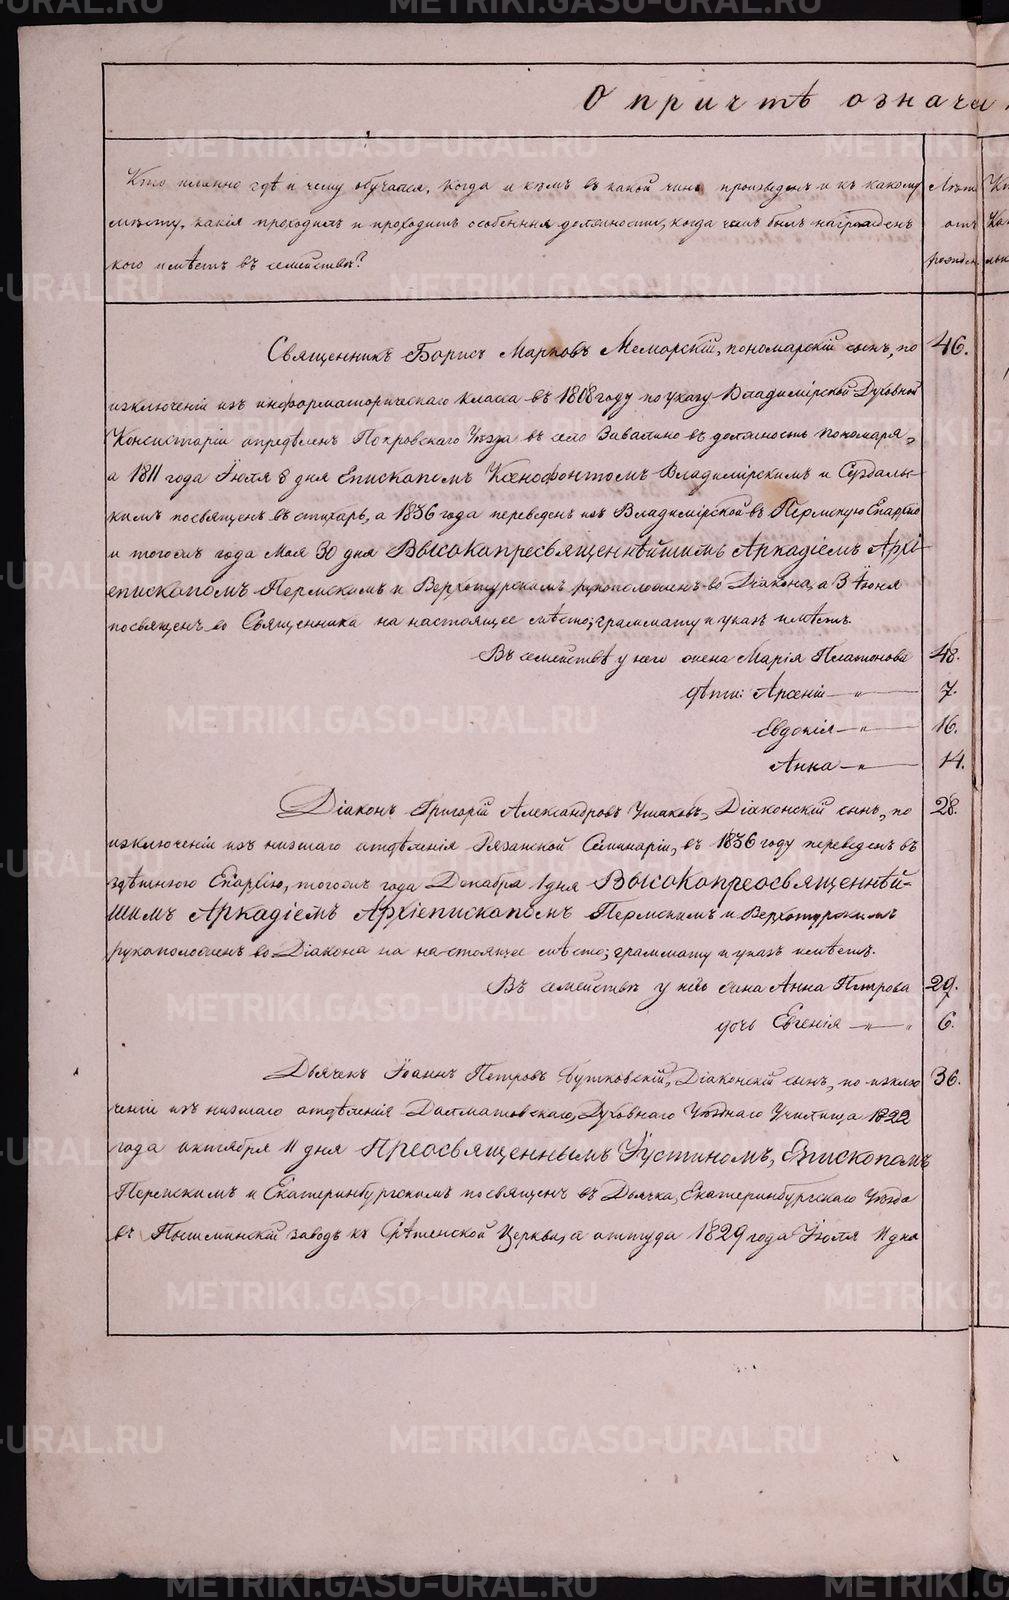 О причтѣ означен
Кто именно гдѣ и чему обучался, когда и кѣмъ въ какой чинъ произведенъ и къ какому
мѣсту, какія проходилъ и проходитъ особенныя должности, когда чемъ былъ награжденъ
кого имѣетъ въ семействѣ?
Лѣта
отъ
рожден.
Священникъ Борисъ Марковъ Меморскій, пономарскій сынъ, по
46.
изключеніи изъ информаторическаго класса въ 1808 году по указу Владимірской Духовной
Консисторіи опредѣленъ Покровскаго Уѣзда въ село Завалино въ должность пономаря,
а 1811 года Іюля 8 дня Епископомъ Ксенофонтомъ Владимірскимъ и Суздаль-
кимъ посвященъ въ стихарь, а 1836 года переведенъ изъ Владимірской въ Пермскую Епархію
и тогожъ года Мая 30 дня Высокопресвященнѣйшимъ Аркадіемъ Архі-
епископомъ Пермскимъ и Верхотурскимъ рукоположенъ во Діакона, а 3 Іюня
посвященъ во Священника на настоящее мѣсто; граммату и указъ имѣетъ.
Въ семействѣ у него жена Марія Платонова 48.
дѣти: Арсеній — " — 7.
Евдокія — " — 16.
Анна — " — 14.
Діаконъ Григорій Александровъ Ушаковъ, Діаконскій сынъ, по 28.
изключеніи изъ низшаго отдѣленія Рязанской Семинаріи, въ 1836 году переведенъ въ
здѣшнюю Епархію, тогожъ года Декабря 1 дня Высокопреосвященнѣй-
шимъ Аркадіемъ Архіепископомъ Пермскимъ и Верхотурскимъ
рукоположенъ во Діакона на настоящее мѣсто; граммату и указъ имѣетъ.
Въ семействѣ у него жена Анна Петрова 29.
дочь Евгенія — " — " 6.
Дьячекъ Іоаннъ Петровъ Бутковскій, Діаконскій сынъ, по изклю 36.
ченіи изъ низшаго отдѣленія Далматовскаго Духовнаго Уѣзднаго Училища 1822
года октября 11 дня Преосвященнымъ Іустиномъ, Епископомъ
Пермскимъ и Екатеринбургскимъ посвященъ въ Дьячка, Екатеринбургскаго Уѣзда
въ Пышминскій заводъ къ Срѣтенской Церкви, а оттуда 1829 года Іюля 11 дня
METRIKI.GASO-URAL.RU